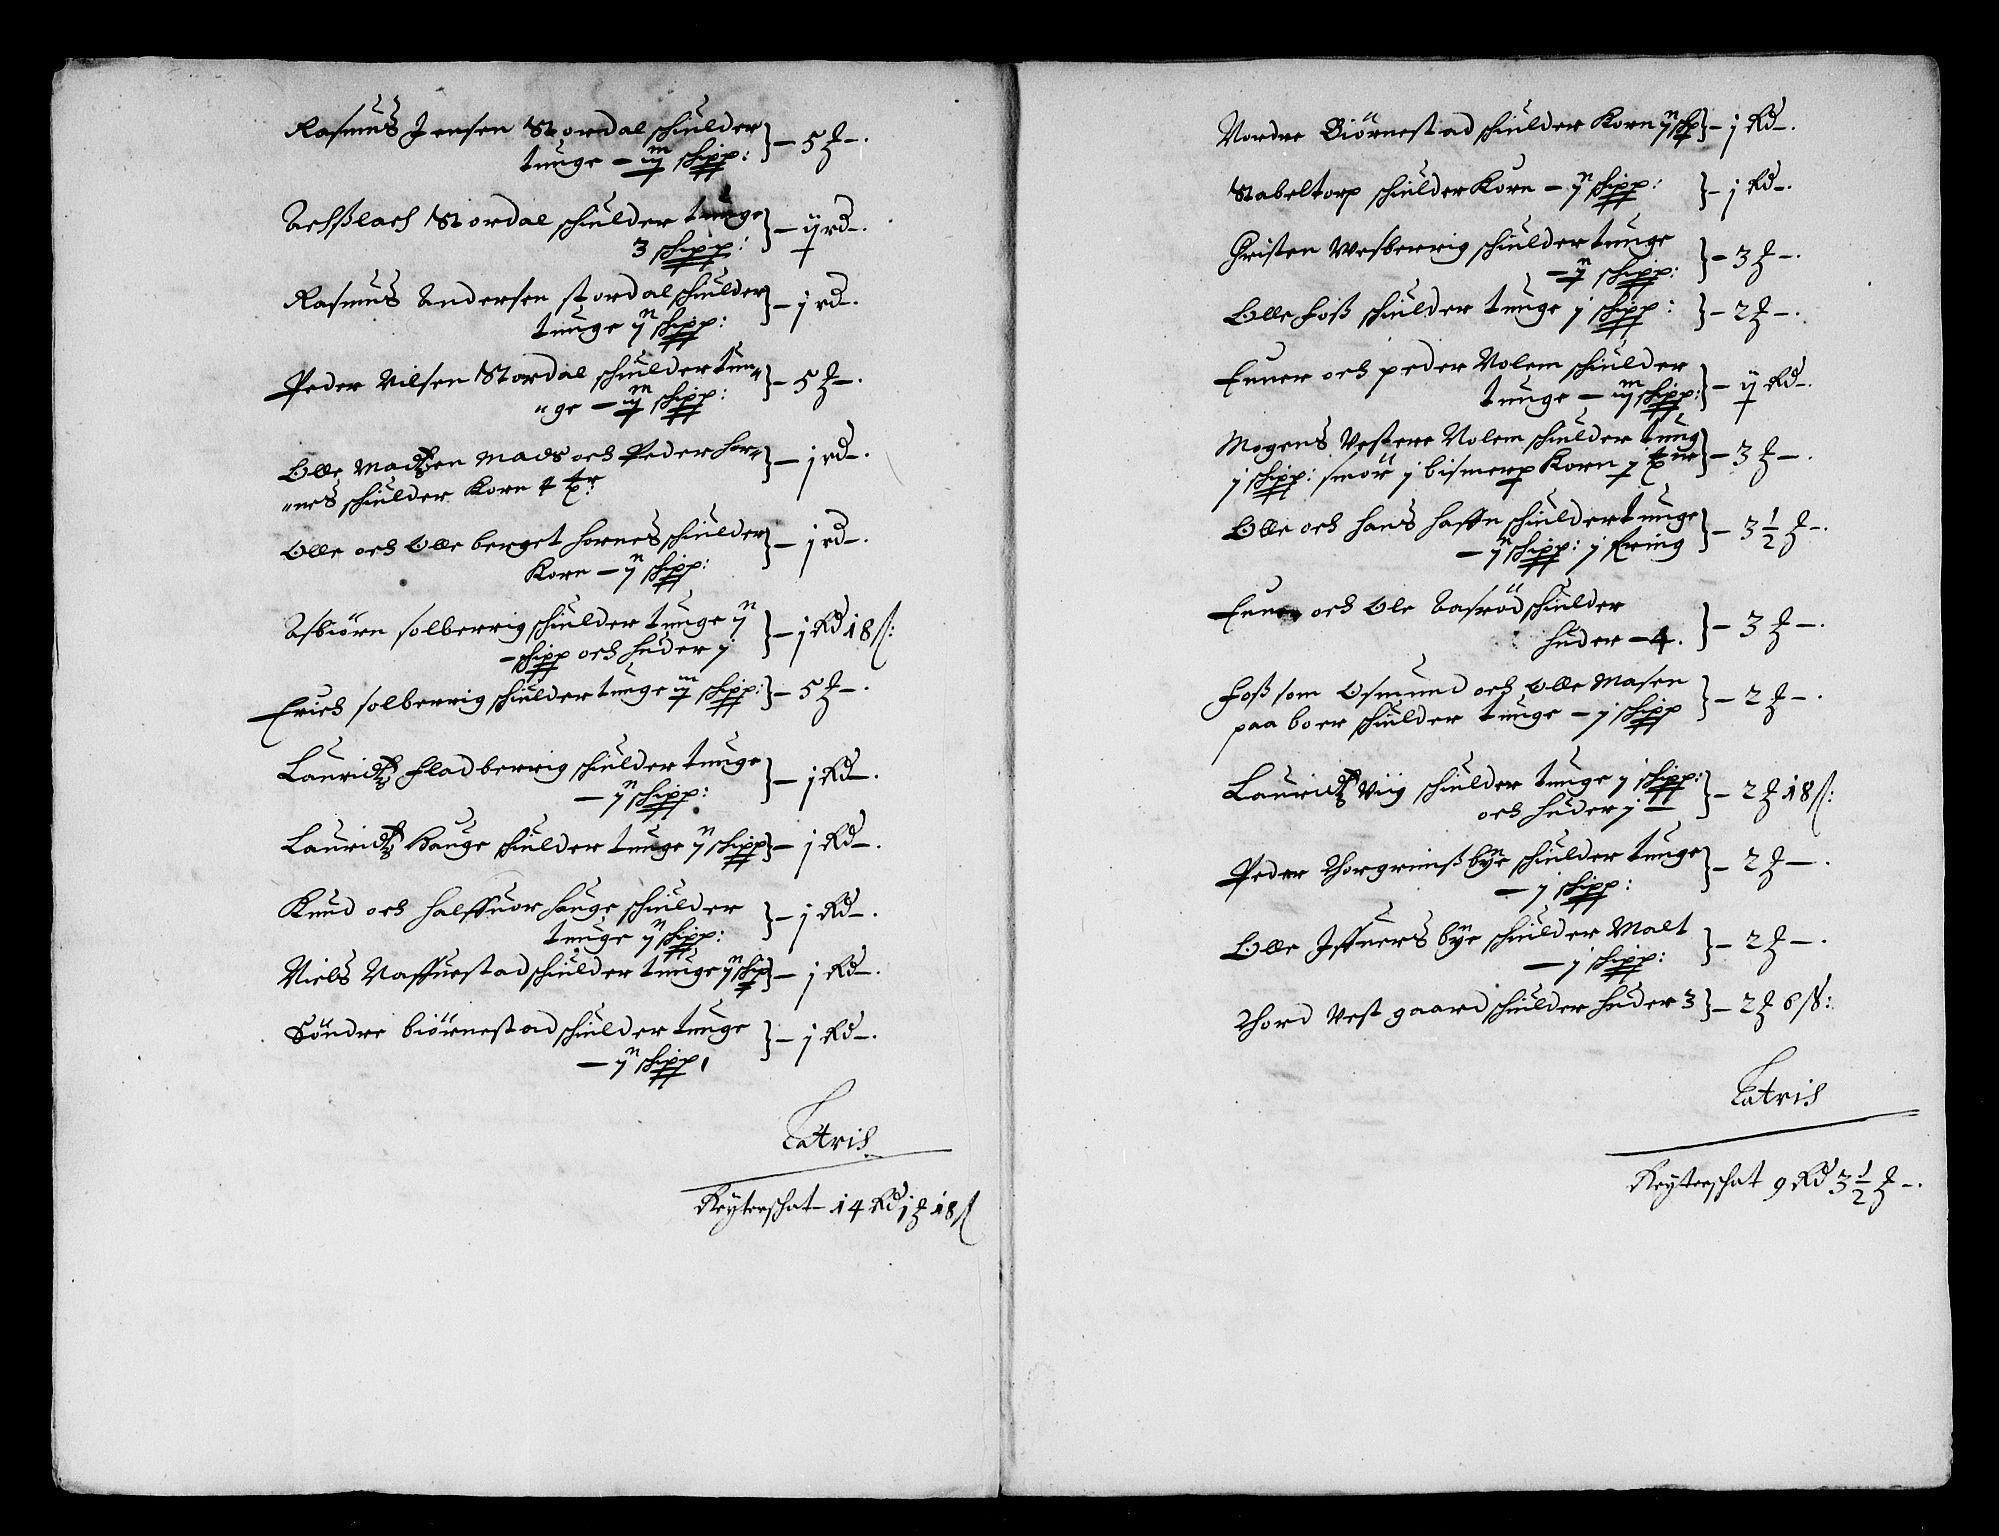 Rasmus Jensen Stordal schulder
tunge – iij schipp: } – 5 ₰ –.
Achßlach Stordal schulder tunge
3 schipp: } – ij rd –.
Rasmus Andersen stordal schulder
tunge ij schipp: } – j rd –.
Peder Nilsen Stordal schulder tun„
„ge – iij schipp: } – 5 ₰ –.
Olle Madtzen Mads och Peder hor„
„nes schulder Korn 4 tr } – j rd –.
Olle och Olle berget hornes schulder
Korn – ij schipp: } – j rd –.
Asbiörn solberrig schulder tunge ij
– schipp och huder j } – j Rd 18 ß:
Erich solberrig schulder tunge iij schipp: } – 5 ₰ –.
Lauridtz Fladberrig schulder tunge
– ij schipp: } – j Rd –.
Lauridtz Hauge schulder tunge ij schipp } – j Rd –.
Knud och halffuor hauge schulder
tunge ij schipp: } – j Rd –.
Niels Naffuestad schulder tunge ij schip } – j Rd –.
Söndre biörnestad schulder tunge
– ij schipp } – j Rd –.
Latris
Reyterschat – 14 Rd 1 ₰ 18 ß
Nordre Biörnestad schulder Korn ij schp } – j Rd –.
Stabeltorp schulder Korn – ij schipp: } – j Rd –.
Christen Wesberrig schulder tunge
– ij schipp: } – 3 ₰ –.
Olle Foß schulder tunge j schipp: } – 2 ₰ –.
Enner och peder Nolem schulder
tunge – iij schipp: } – ij Rd –.
Mogens Vestere Nolem schulder tung
j schipp: smör j bismerp Korn j tue } – 3 ₰ –.
Olle och hans haffn schulder tunge
– ij schipp: j Ering } – 3 1/2 ₰ –.
Enner och Ole Aasröd schulder
huder – 4. } – 3 ₰ –.
Foß som Osmund och Olle Masen
paa boer schulder tunge – j schipp } – 2 ₰ –.
Lauridtz Viig schulder tunge j schipp:
och huder j – } – 2 ₰ 18 ß:
Peder Thorgrimß bye schulder tunge
– j schipp: } – 2 ₰ –.
Olle Iffuers bye schulder Malt
– j schipp: } – 2 ₰ –.
Thord Vestgaard schulder huder 3 } – 2 ₰ 6 ß:
Latris
Reyterschat 9 Rd 3 1/2 ₰ –.